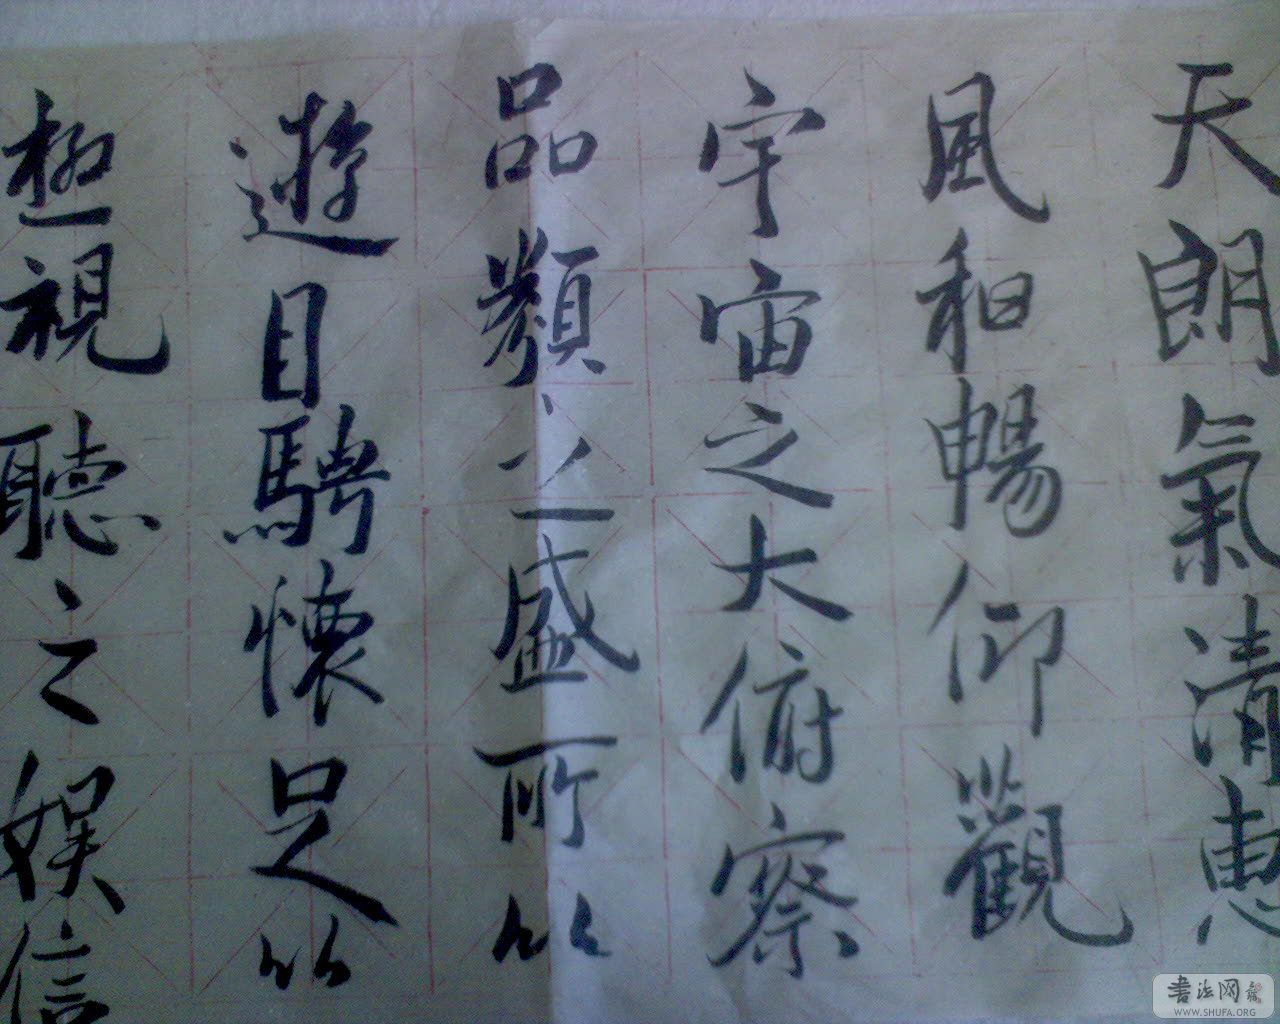 天朗氣清惠
風和暢仰觀
宇宙之大俯察
品類之盛所以
遊目騁懷足以
極視聽之娱信
書法网
WWW.SHUFA.ORG